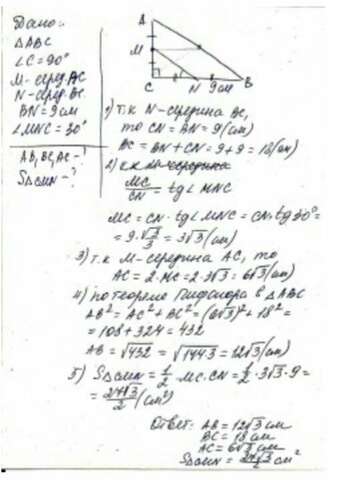 Дано:
ΔABC
∠C=90°
M-серед. AC
N-серед. BC
BN=9см
∠MNC=30°
AB, BC, AC-?
SΔCMN-?
A
M
C
N 9см B
1) т.к N-середина BC,
то CN=BN=9(см)
BC=BN+CN=9+9=18(см)
2) т.к M-середина
MC/CN = tg∠MNC
MC=CN·tg∠MNC=CN·tg30°=
=9·√3/3=3√3(см)
3) т.к M-середина AC, то
AC=2·MC=2·3√3=6√3(см)
4) по теореме Пифагора в ΔABC
AB²=AC²+BC²=(6√3)²+18²=
=108+324=432
AB=√432=√144·3=12√3(см)
5) SΔCMN=1/2·MC·CN=1/2·3√3·9=
=27√3/2(см²)
Ответ: AB=12√3см
BC=18см
AC=6√3см
SΔCMN=27√3/2см²